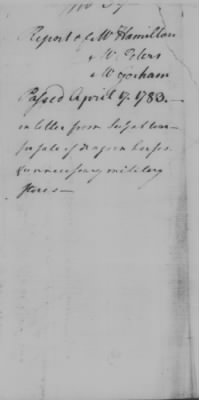 Report of Mr Hamilton
Mr Peters
Mr Gorham
Passed April 7. 1783.
on letter from
for sale of dragoon horses
& unnecessary military
stores —